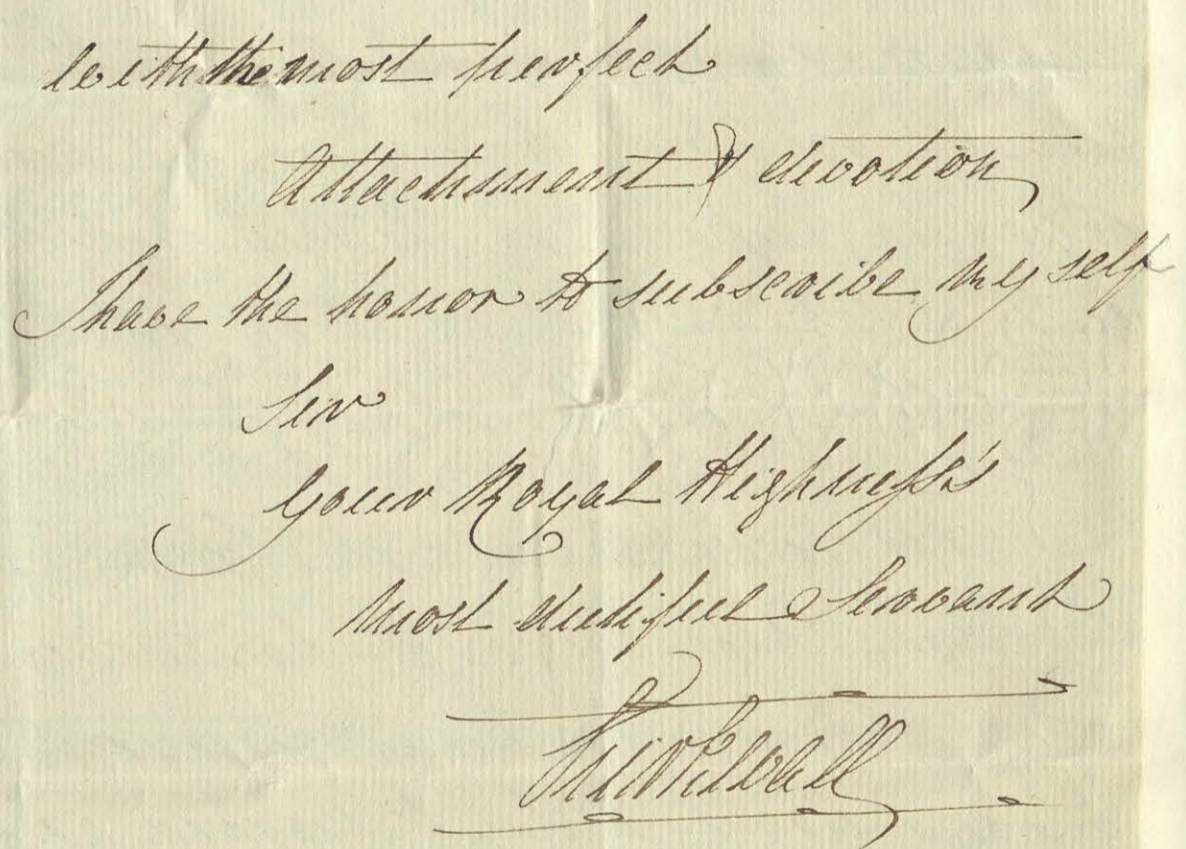 with the most perfect
Attachment & devotion
I have the honor to subscribe my self
Sir
Your Royal Highness's
most dutiful Servant